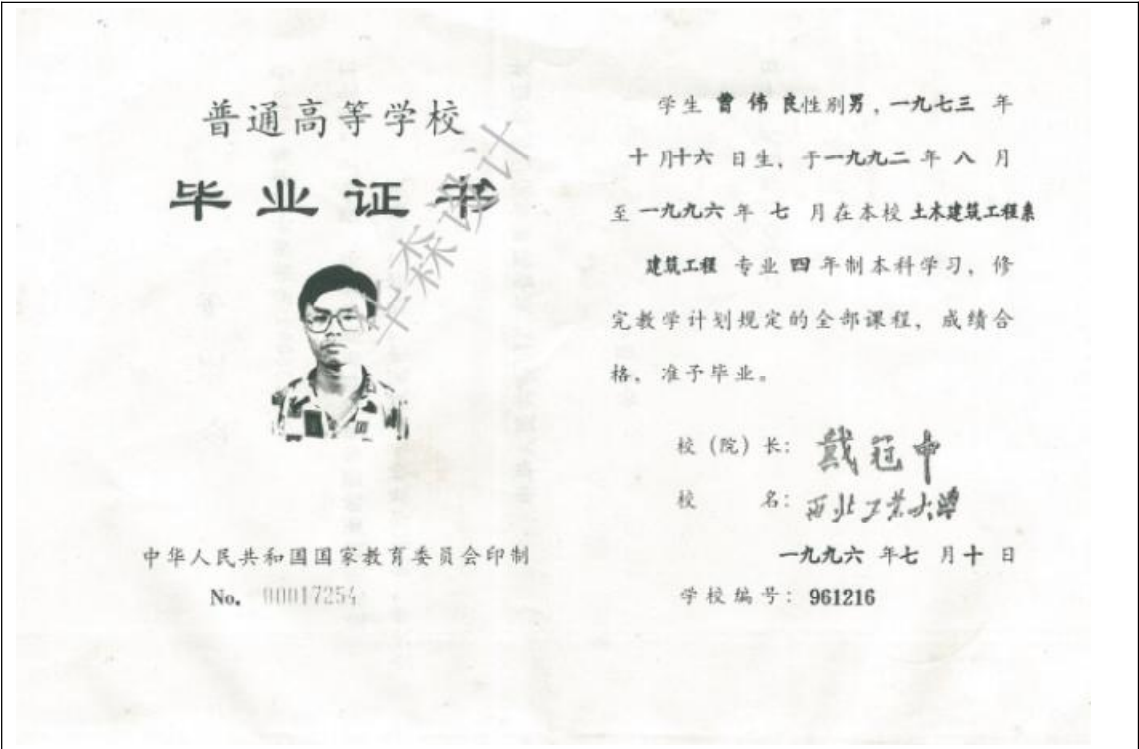 普通高等学校
毕业证书
中华人民共和国国家教育委员会印制
No. 00017254
学生 曾伟良性别男，一九七三 年
十月十六 日生，于一九九二 年 八 月
至一九九六 年 七 月在本校 土木建筑工程系
建筑工程 专业 四 年制本科学习，修
完教学计划规定的全部课程，成绩合
格，准予毕业。
校（院）长：戴冠中
校 名：西北工业大学
一九九六 年七 月十 日
学校编号：961216